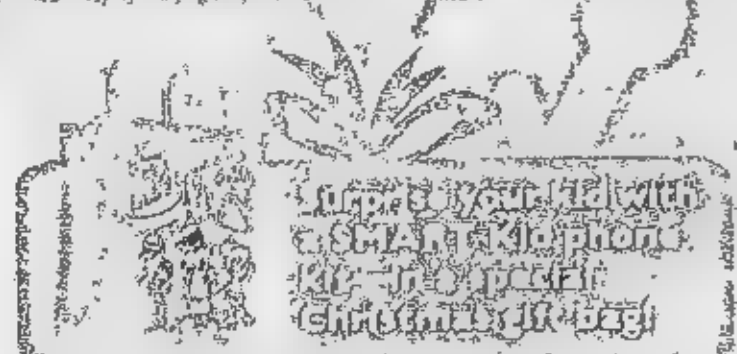 Surprise your kid with
a SMART Kid phone
kit - in a special
Christmas gift bag!